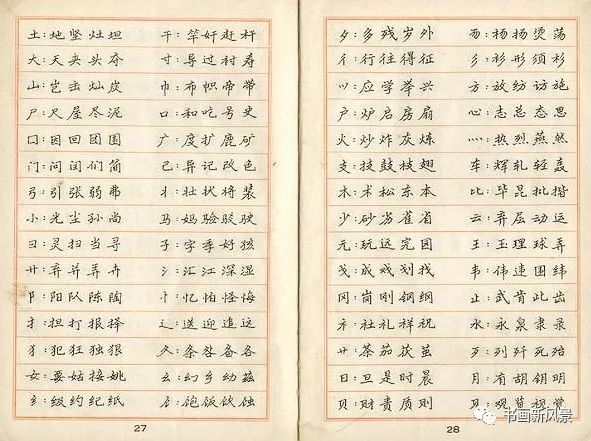 土：地坚灶坦　干：竿奸赶杆
大：天夹头夺　寸：导过衬寿
山：岂击灿炭　巾：布帜帘带
尸：尺屋尽泥　口：和吃号史
囗：因回团围　广：度扩鹿矿
门：间闰们简　己：异记改色
弓：引张弱弗　丬：壮状将装
小：光尘孙尚　马：妈验驳驶
彐：灵扫当寻　子：字季好孩
廾：弃并弄卉　氵：汇江深湿
阝：阳队陈陶　忄：忆怕怪悔
扌：担打报择　辶：送迎追远
犭：犯狂独狠　夂：条咎备各
女：要姑接姚　幺：幻乡幼兹
纟：级约纪纸　饣：饱饭饮蚀
27
夕：多残岁外　杨扬烫荡
彳：行往得征　彡：衫形须衫
⺍：应学举兴　方：放纺访施
户：炉启房扇　心：志总态思
火：炒炸灰炼　灬：热烈燕然
支：技鼓枝翅　车：辉轧轻轰
木：术松东本　比：毕昆批揩
少：砂劣雀省　云：弃层动运
元：玩远完园　王：玉理球弄
戈：成戏划找　韦：伟违围纬
冈：岗刚钢纲　止：武肯此齿
礻：社礼祥祝　水：永泉隶录
艹：茶茄茯茧　歹：列歼死殆
日：旦是时晨　月：有胡钥明
贝：财责质则　见：观览视觉
28
书画新风景